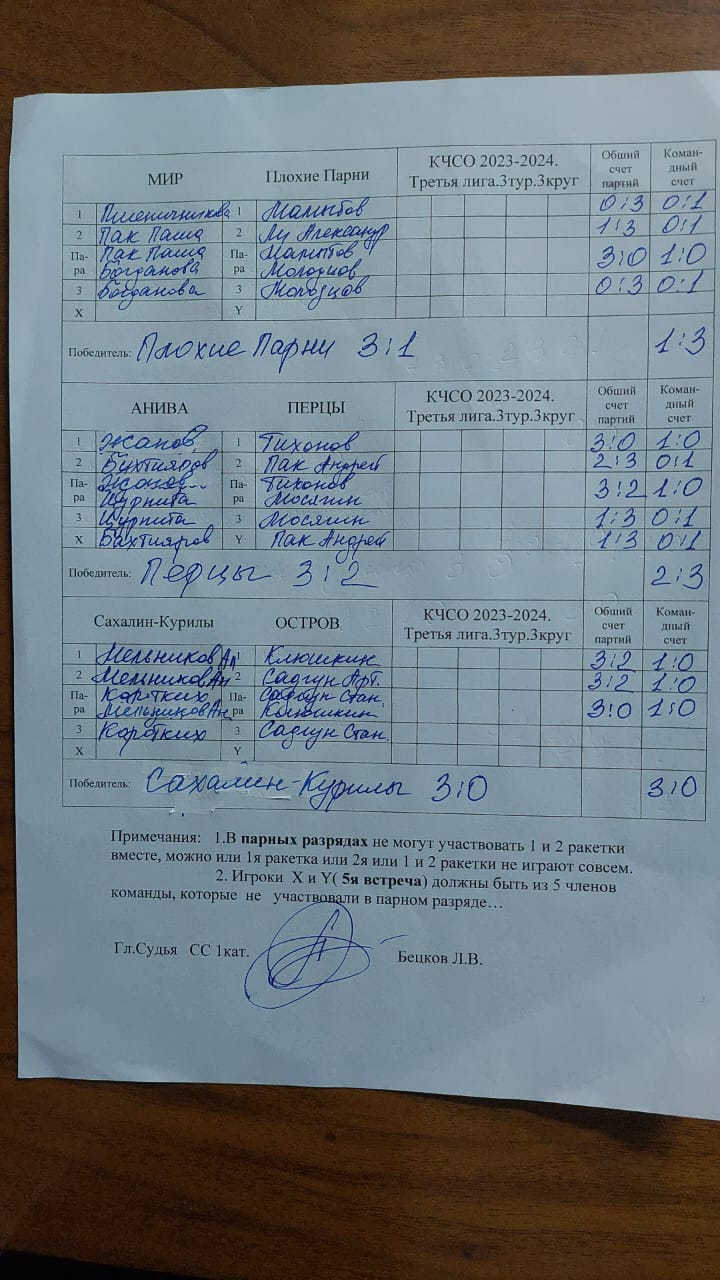 МИР Плохие Парни КЧСО 2023-2024. Третья лига.3тур.3круг Общий счет партий Коман-дный счет
1 Пшеничникова 1 Мамытов 0:3 0:1
2 Пак Паша 2 Ли Александр 1:3 0:1
Па-ра Пак Паша Богданова Па-ра Мамытов Молодцов 3:0 1:0
3 Богданова 3 Молодцов 0:3 0:1
X Y
Победитель: Плохие Парни 3:1 1:3
АНИВА ПЕРЦЫ КЧСО 2023-2024. Третья лига.3тур.3круг Общий счет партий Коман-дный счет
1 Жанов 1 Тихонов 3:0 1:0
2 Бахтияров 2 Пак Андрей 2:3 0:1
Па-ра Жанов Цурпита Па-ра Тихонов Мосягин 3:2 1:0
3 Цурпита 3 Мосягин 1:3 0:1
X Бахтияров Y Пак Андрей 1:3 0:1
Победитель: Перцы 3:2 2:3
Сахалин-Курилы ОСТРОВ КЧСО 2023-2024. Третья лига.3тур.3круг Общий счет партий Коман-дный счет
1 Мельников Ал 1 Клюшкин 3:2 1:0
2 Мельников Ан 2 Садгун Арт. 3:2 1:0
Па-ра Коротких Мельников Ан. Па-ра Садгун Стан. Клюшкин 3:0 1:0
3 Коротких 3 Садгун Стан.
X Y
Победитель: Сахалин-Курилы 3:0 3:0
Примечания: 1.В парных разрядах не могут участвовать 1 и 2 ракетки
вместе, можно или 1я ракетка или 2я или 1 и 2 ракетки не играют совсем.
2. Игроки X и Y( 5я встреча) должны быть из 5 членов
команды, которые не участвовали в парном разряде…
Гл.Судья СС 1кат. Бецков Л.В.